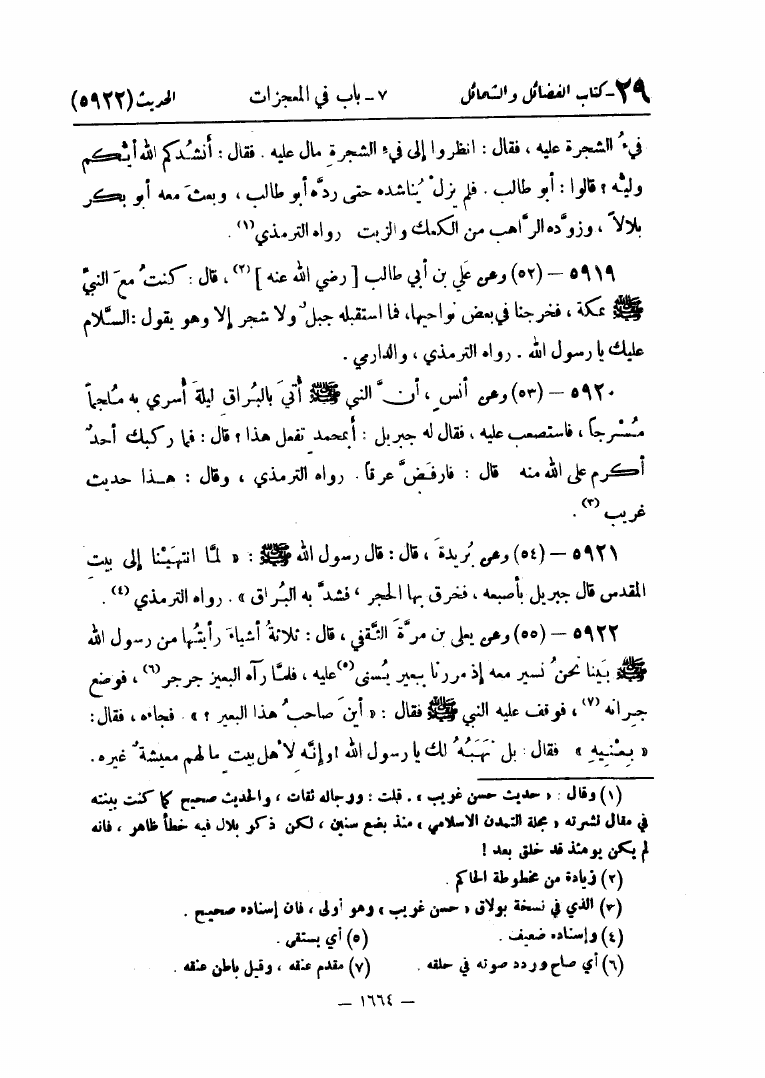 ٢٩ـ كتاب الفضائل والشمائل ٧ ـ باب في المعجزات الحديث (٥٩٢٢)
فيءُ الشجرة عليه ، فقال : انظروا إلى فيءِ الشجرةِ مال عليه . فقال : أنشدُكم الله أيُّكم
وليُّه ؟ قالوا : أبو طالب . فلم يزلْ يُناشده حتى ردَّه أبو طالب ، وبعثَ معه أبو بكر
بلالاً ، وزوَّده الرَّاهب من الكعك والزيت رواه الترمذي(١) .
٥٩١٩ – (٥٢) وعن علي بن أبي طالب [ رضي الله عنه ](٢) ، قال : كنتُ معَ النبيِّ
ﷺ بمكة ، فخرجنا في بعض نواحيها، فما استقبله جبلٌ ولا شجر إلا وهو يقول : السَّلام
عليك يا رسول الله . رواه الترمذي ، والدارمي .
٥٩٢٠ – (٥٣) وعن أنسٍ ، أنَّ النبي ﷺ أُتيَ بالبُراقِ ليلةَ أُسري به مُلجماً
مُسْرجاً ، فاستصعب عليه ، فقال له جبريل : أبمحمدٍ تفعل هذا ؟ قال : فما ركبك أحدٌ
أكرم على الله منه قال : فارفضَّ عرقاً . رواه الترمذي ، وقال : هـذا حديث
غريب(٣) .
٥٩٢١ – (٥٤) وعن بُريدةَ ، قال : قال رسول الله ﷺ : « لمَّا انتهيْنا إلى بيتِ
المقدس قال جبريل بأصبعه ، فخرق بها الحجر ، فشدَّ به البُراق » . رواه الترمذي(٤) .
٥٩٢٢ – (٥٥) وعن يعلى بن مرَّةَ الثَّقفي ، قال : ثلاثةُ أشياءَ رأيتُها من رسول الله
ﷺ بَينا نحنُ نسير معه إذ مررنا ببعير يُسنى(٥) عليه ، فلمَّا رآه البعير جرجر(٦) ، فوضع
جِرانه(٧) ، فوقف عليه النبي ﷺ فقال : « أينَ صاحبُ هذا البعير ؟ » . فجاءه ، فقال :
« بِعْنيهِ » فقال : بل نَهَبُهُ لك يا رسول الله ! وإنَّه لأهل بيتٍ ما لهم معيشةٌ غيره .
(١) وقال : « حديث حسن غريب » . قلت : ورجاله ثقات ، والحديث صحيح كما كنت بينته
في مقال نشرته « مجلة التمدن الاسلامي » منذ بضع سنين ، لكن ذكر بلال فيه خطأ ظاهر ، فانه
لم يكن يومئذ قد خلق بعد !
(٢) زيادة من مخطوطة الحاكم .
(٣) الذي في نسخة بولاق « حسن غريب » وهو أولى ، فان إسناده صحيح .
(٤) وإسناده ضعيف . (٥) أي يستقى .
(٦) أي صاح وردد صوته في حلقه . (٧) مقدم عنقه ، وقيل باطن عنقه .
– ١٦٦٤ –